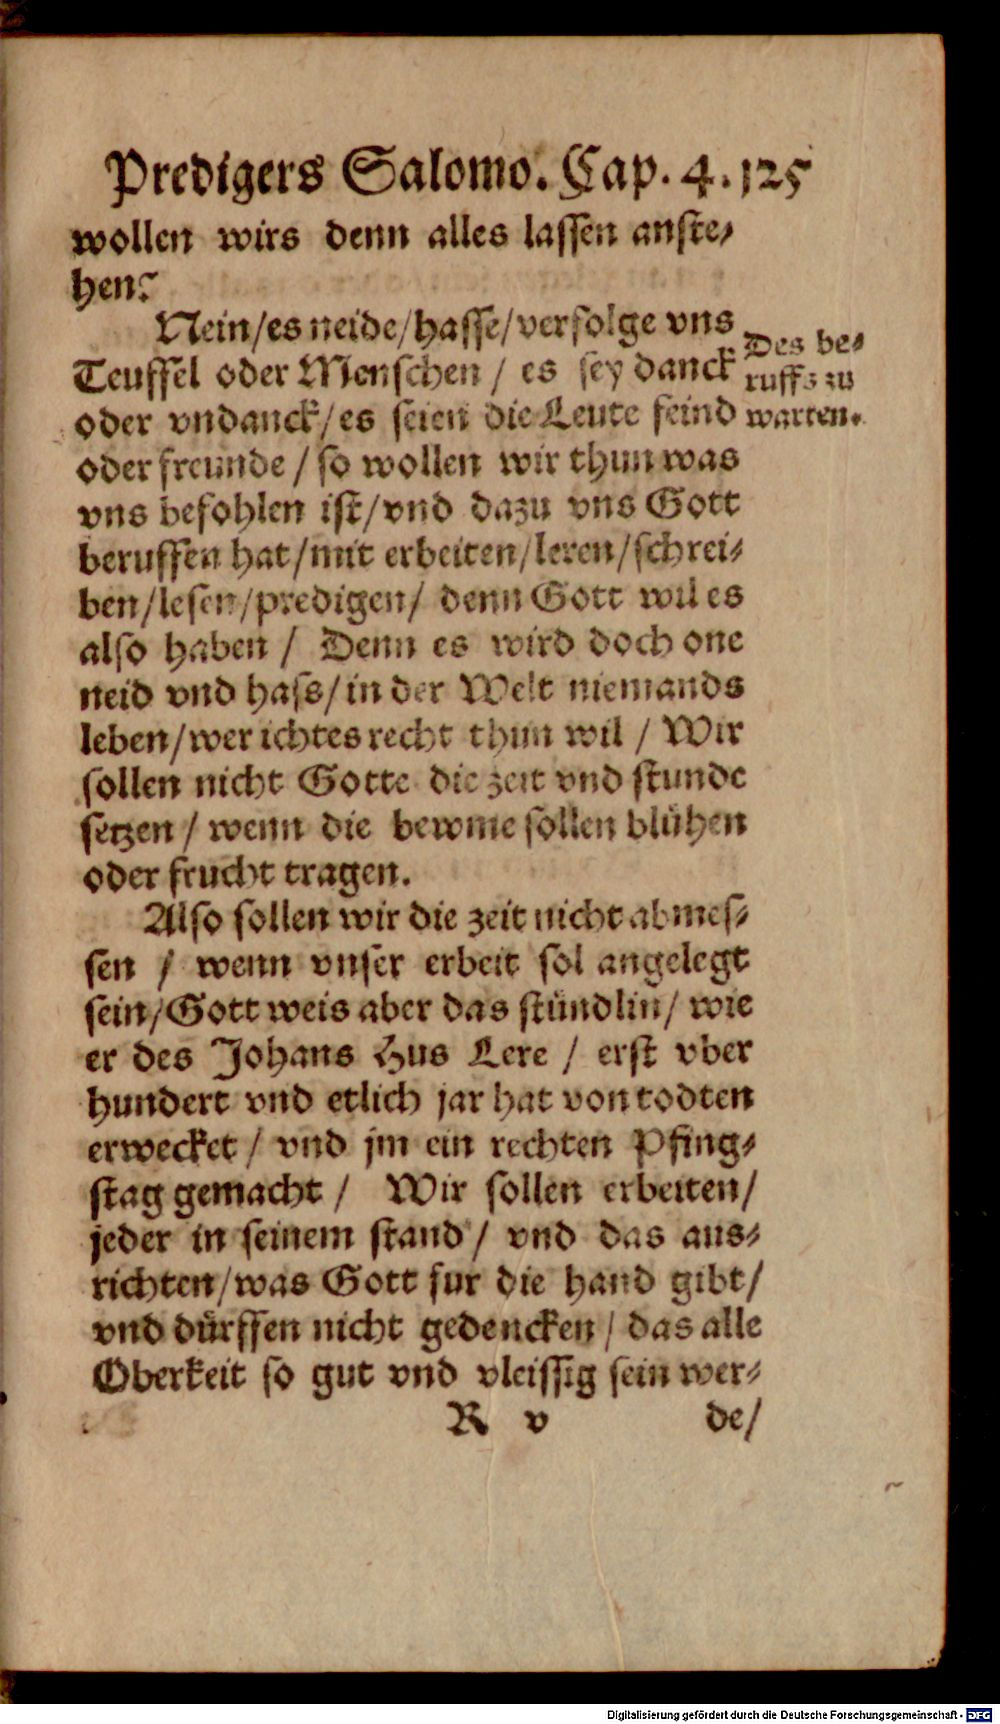 Predigers Salomo. Cap. 4. 125
wollen wirs denn alles lassen anste⸗
hen?
Nein/es neide/hasse/verfolge vns
Teuffel oder Menschen / es sey danck
oder vndanck/es seien die Leute feind
oder freunde / so wollen wir thun was
vns befohlen ist/vnd dazu vns Gott
beruffen hat/mit erbeiten/leren/schrei⸗
ben/lesen/predigen/ denn Gott wil es
also haben / Denn es wird doch one
neid vnd hass/in der Welt niemands
leben/wer ichtes recht thun wil / Wir
sollen nicht Gotte die zeit vnd stunde
setzen / wenn die bewme sollen blühen
oder frucht tragen.
Also sollen wir die zeit nicht abmes⸗
sen / wenn vnser erbeit sol angelegt
sein/Gott weis aber das stündlin/ wie
er des Johans Hus Lere / erst vber
hundert vnd etlich jar hat von todten
erwecket / vnd jm ein rechten Pfing⸗
stag gemacht / Wir sollen erbeiten/
jeder in seinem stand / vnd das aus⸗
richten/was Gott fur die hand gibt/
vnd dürffen nicht gedencken / das alle
Oberkeit so gut vnd vleissig sein wer⸗
R v de/
Des be⸗
ruffs zu
warten.
Digitalisierung gefördert durch die Deutsche Forschungsgemeinschaft - DFG